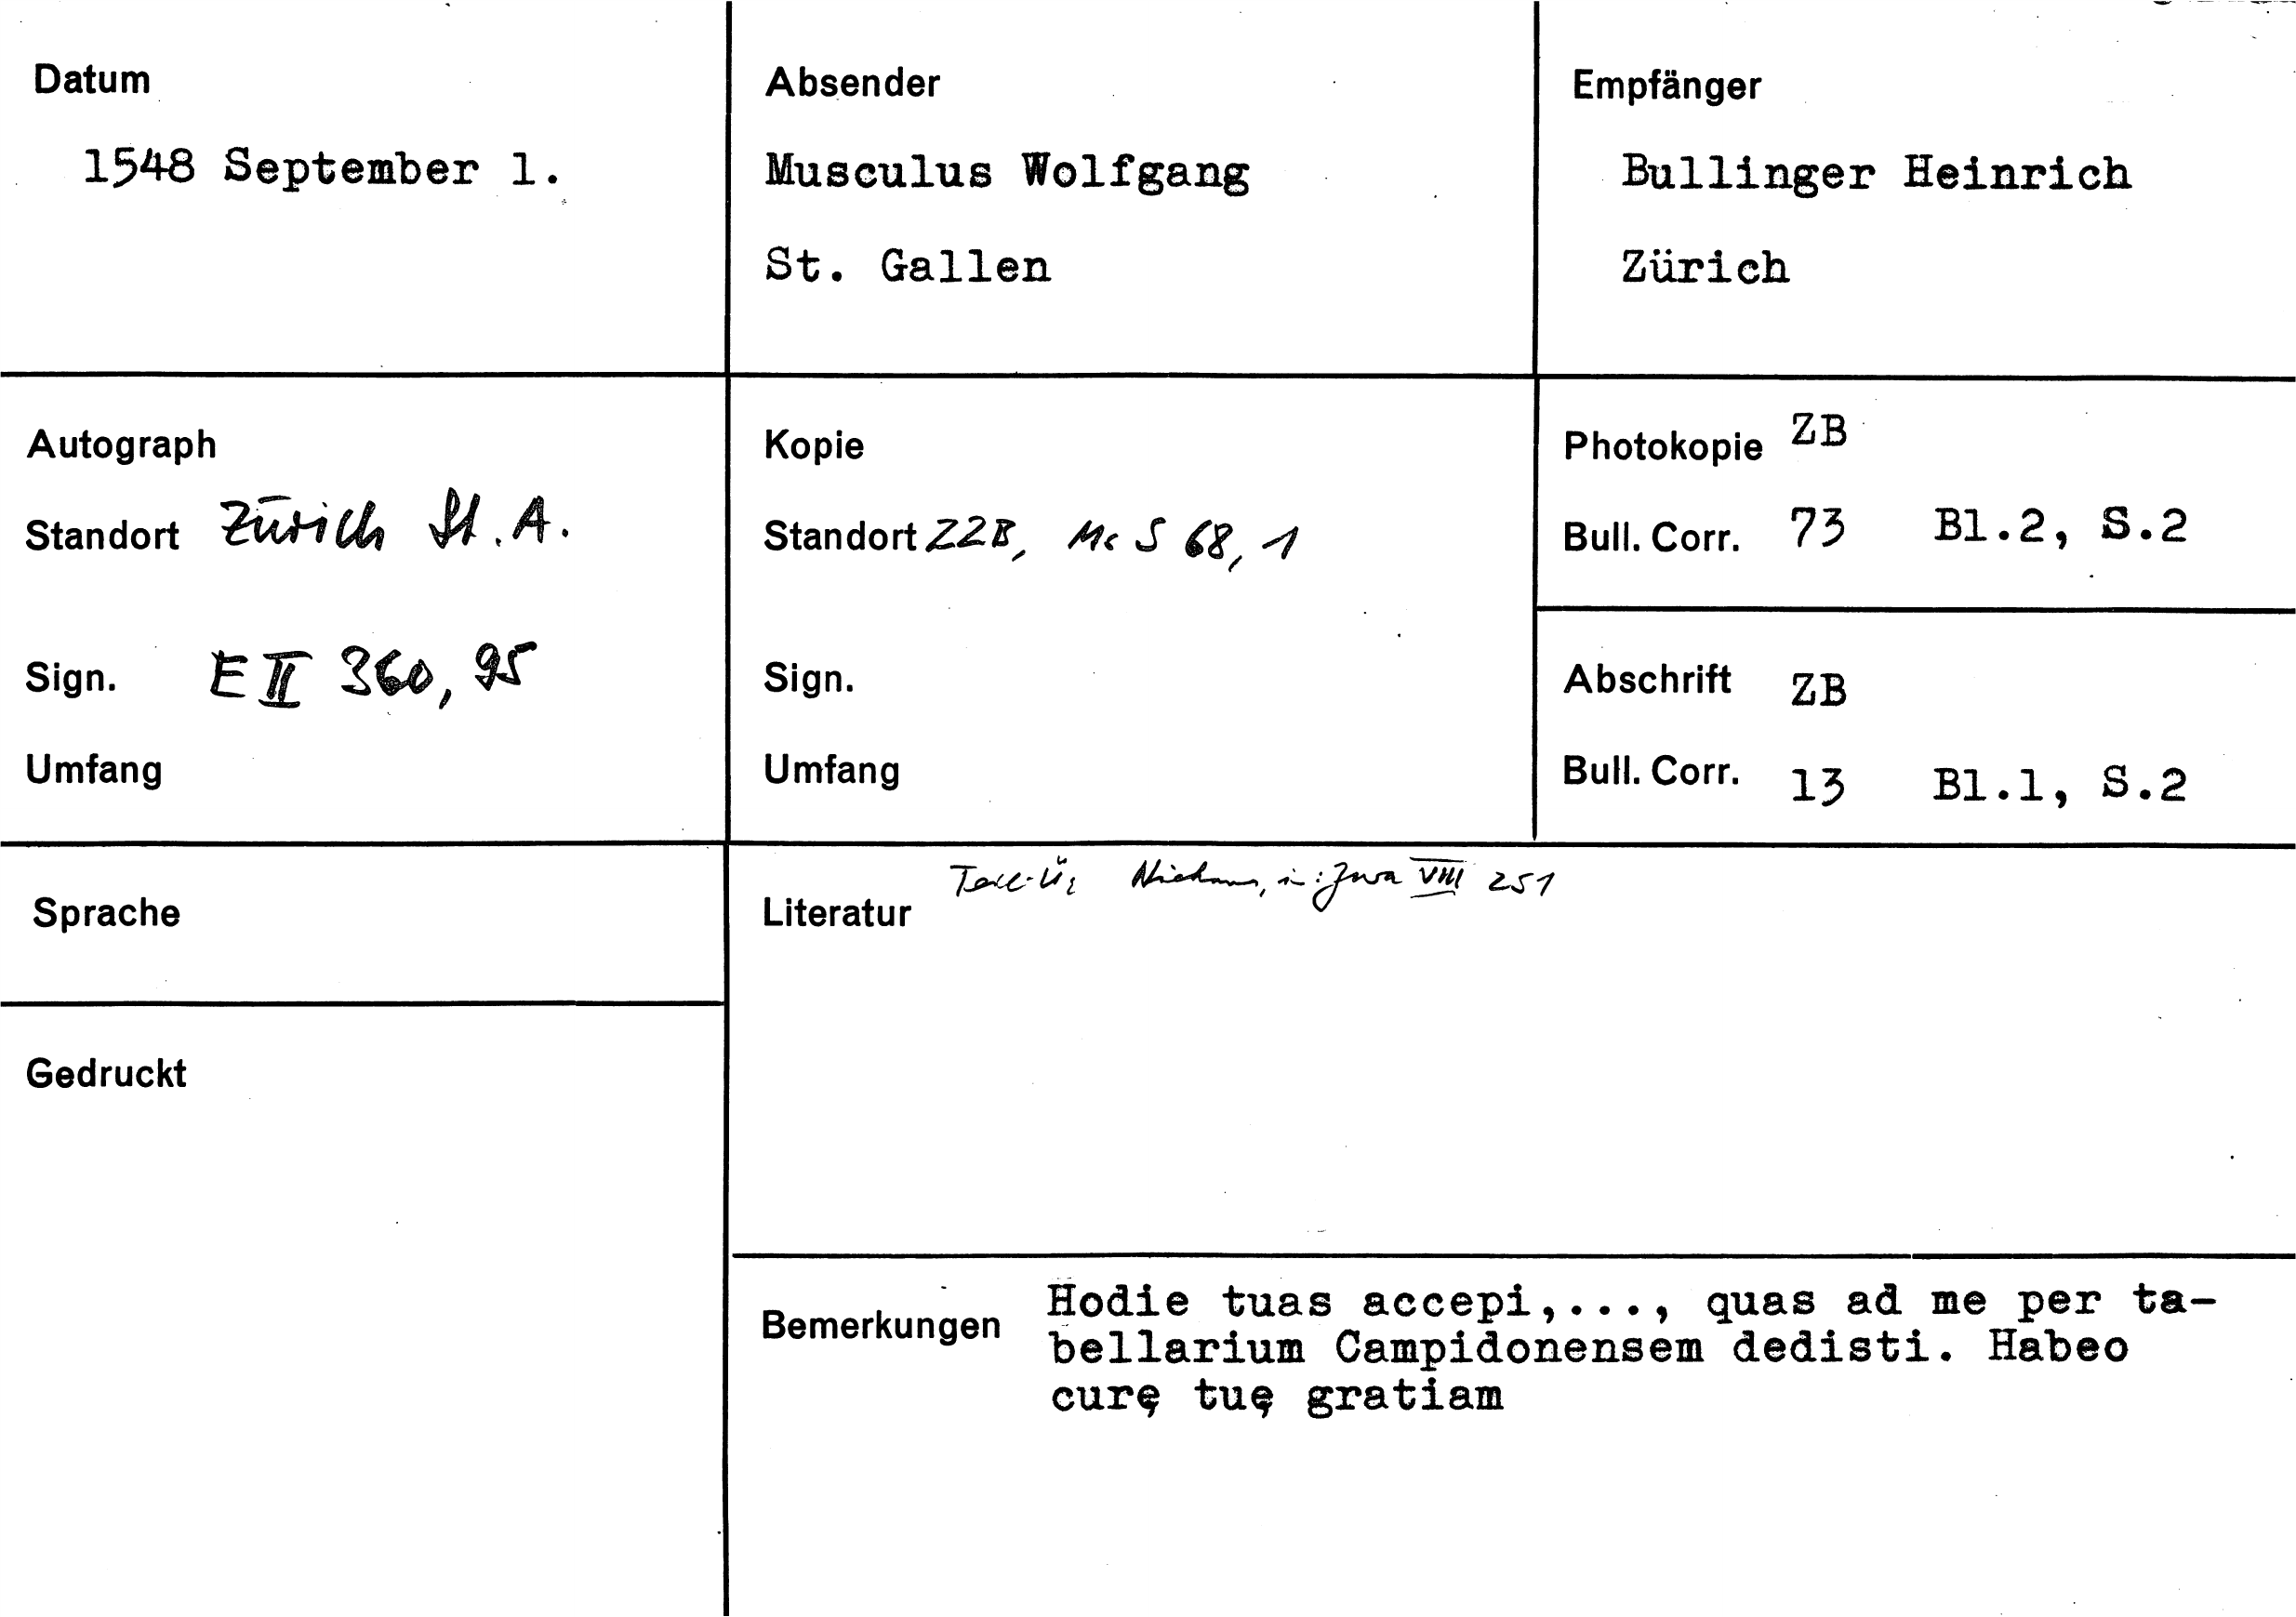 Datum
1548 September 1.
Absender
Musculus Wolfgang
St. Gallen
Empfänger
Bullinger Heinrich
Zürich
Autograph
Standort Zürich St. A.
Sign. E II 360, 95
Umfang
Kopie
Standort ZZB, Ms S 68, 1
Sign.
Umfang
Photokopie ZB
Bull. Corr. 73 Bl.2, S.2
Abschrift ZB
Bull. Corr. 13 Bl.1, S.2
Sprache
Gedruckt
Literatur
in: Zwa VIII 251
Bemerkungen
Hodie tuas accepi,..., quas ad me per ta-
bellarium Campidonensem dedisti. Habeo
curę tuę gratiam